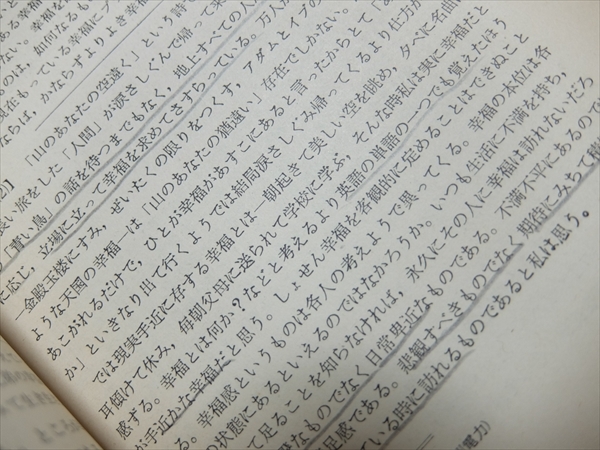 ならば、かならずよりよき幸福
「山のあなたの空遠く」という詩で
い旅をした「人間」が涙さしぐんで帰って来
「青い鳥」の話を待つまでもなく，地上すべての人
に応じ，立場に立って幸福を求めてさすらっている。万人が
―金殿玉楼にすみ，ぜいたくの限りをつくす，アダムとイブの
ような天国の幸福―は「山のあなたの猶遠い」存在でしかない。
あこがれるだけで，ひとが幸福があすこにあると言ったからとて「あ
か」といきなり出て行くようでは結局涙さしぐみ帰ってくるより仕方が
では現実手近に存する幸福とは―朝起きて美しい空を眺め，夕べに名曲に
耳傾けて休み，毎朝父母に送られて学校に学ぶ，そんな時私は実に幸福だと
感ずる。幸福とは何か？などと考えるより英語の単語の一つでも覚えたほう
が手近かな幸福だと思う。しょせん幸福を客観的に定めることはできぬこと
る。幸福感というものは各人の考えようで異ってくる。幸福の本位は各
の状態にあるといえるのではなかろうか。いつも生活に不満を持ち，
て足ることを知らなければ，永久にその人に幸福は訪れないだろ
なものでなく日常卑近なものである。不満不平にあるので
足感である。悲観すべきものでなく期待にみちて積
ている時に訪れるものであると私は思う。
電力)